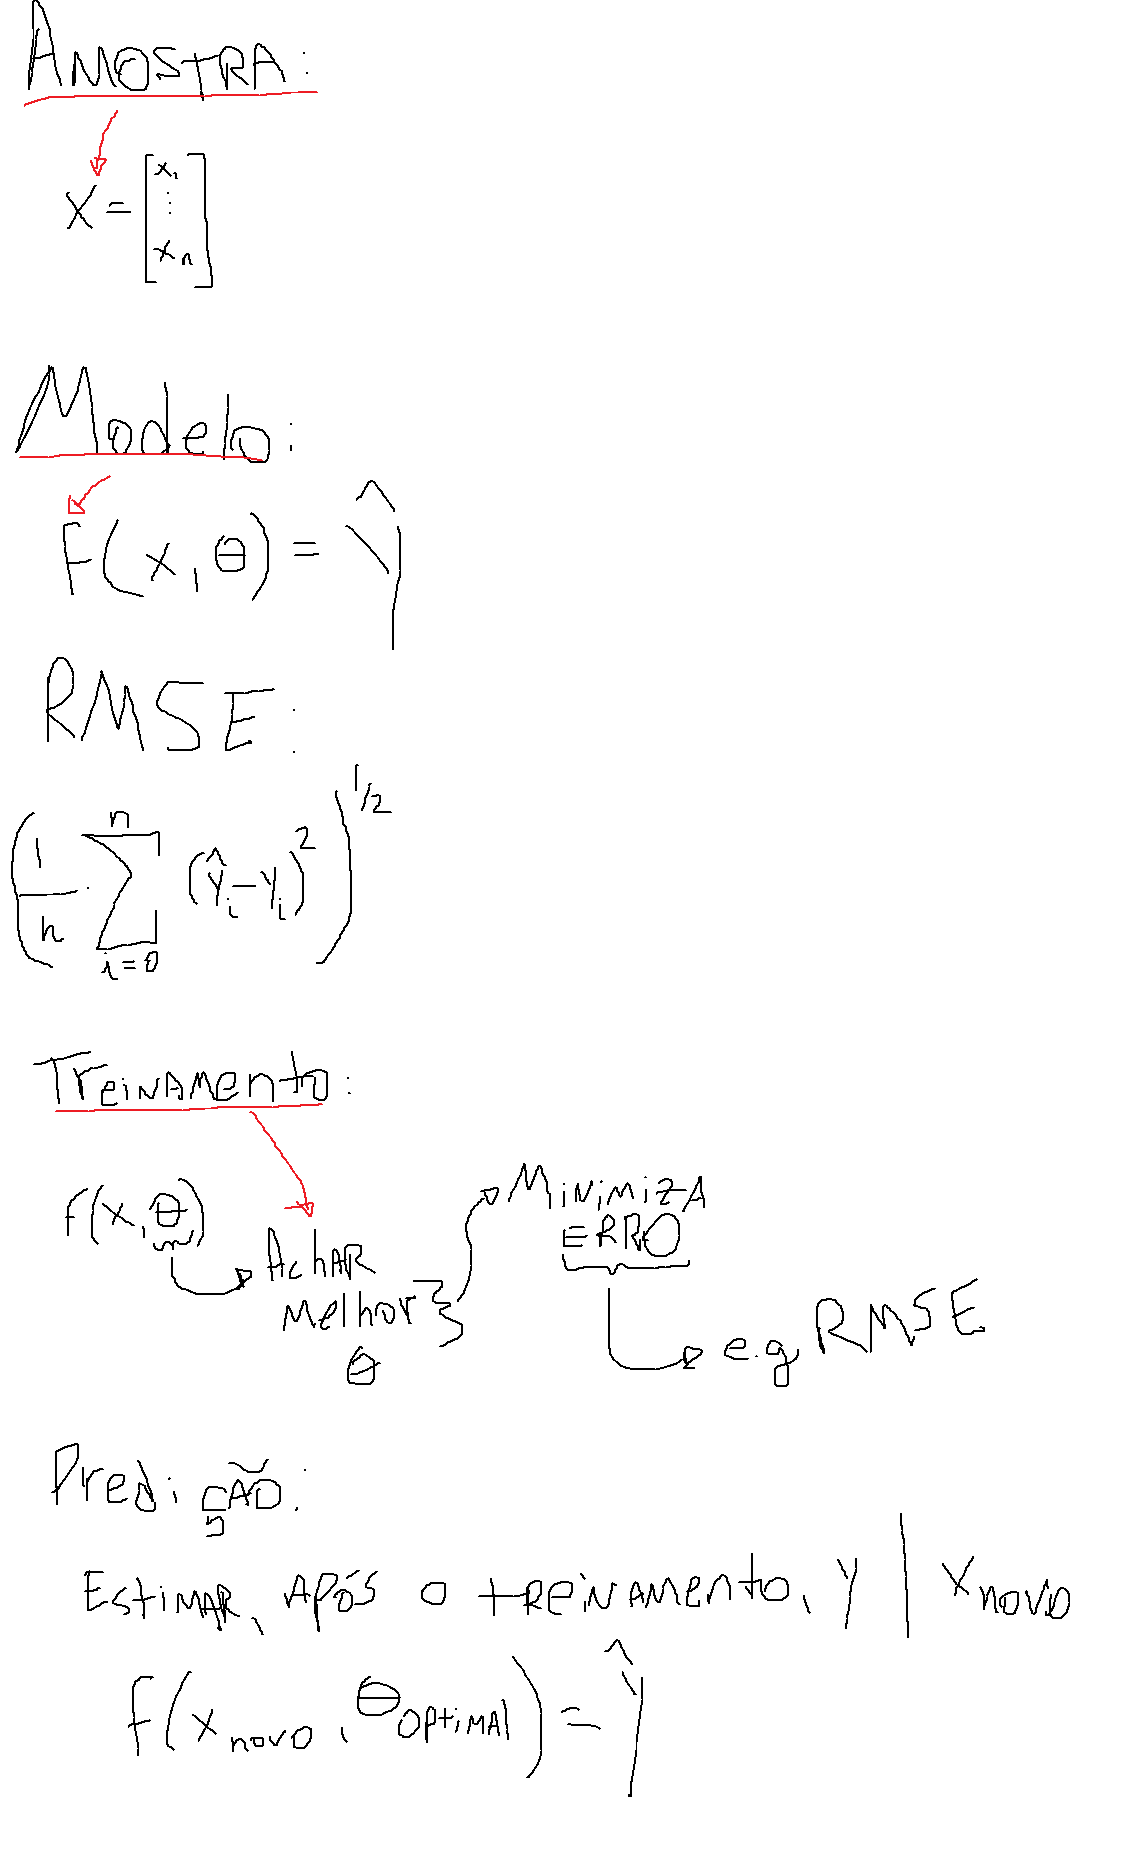 AMOSTRA:
X = [x₁ ⋮ xₙ]
Modelo:
F(x, θ) = Ŷ
RMSE:
(1/n · Σⁿᵢ₌₀ (Ŷᵢ - Yᵢ)²)^1/2
Treinamento:
f(x, θ)
Achar
melhor }
θ
Minimiza
ERRO
e.g RMSE
Predição:
Estimar, após o treinamento, y | x novo
f(x novo, θ optimal) = Ŷ